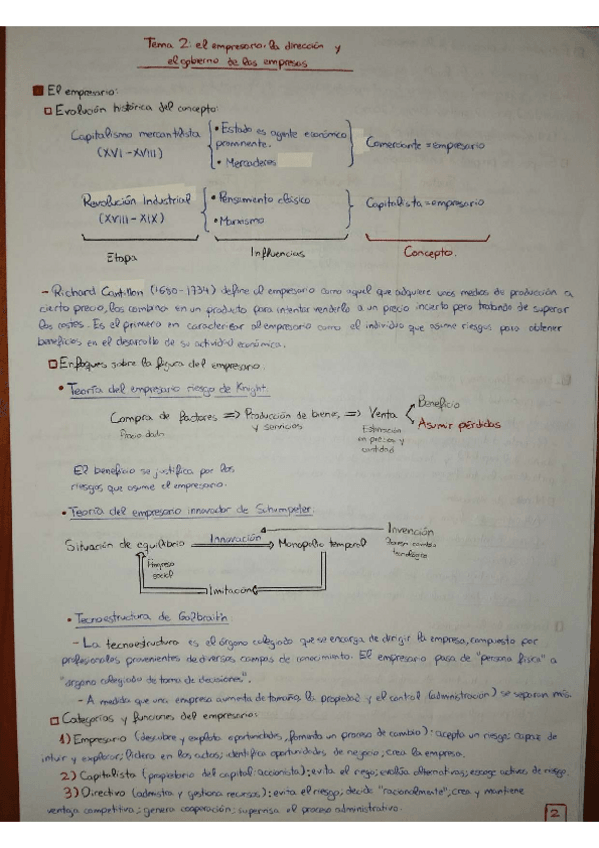 Tema 2: el empresario, la dirección y
el gobierno de las empresas
El empresario:
Evolución histórica del concepto:
Capitalismo mercantilista
(XVI-XVIII)
• Estado es agente económico
prominente.
• Mercaderes
Comerciante = empresario
Revolución Industrial
(XVIII-XIX)
• Pensamiento clásico
• Marxismo
Capitalista = empresario
Etapa
Influencias
Concepto.
- Richard Cantillon (1680-1734) define al empresario como aquel que adquiere unos medios de producción a
cierto precio, los combina en un producto para intentar venderlo a un precio incierto pero tratando de superar
los costes. Es el primero en caracterizar al empresario como el individuo que asume riesgos para obtener
beneficios en el desarrollo de su actividad económica.
Enfoques sobre la figura del empresario.
• Teoría del empresario riesgo de Knight.
Compra de factores => Producción de bienes => Venta
Beneficio
Asumir pérdidas
Precio dado
y servicios
Estimación
en precios y
cantidad
El beneficio se justifica por los
riesgos que asume el empresario.
• Teoría del empresario innovador de Schumpeter.
Situación de equilibrio
Innovación
Monopolio temporal
Invención
tecnológico
Progreso
social
Imitación
• Tecnoestructura de Galbraith
- La tecnoestructura es el órgano colegiado que se encarga de dirigir la empresa, compuesto por
profesionales provenientes de diversos campos de conocimiento. El empresario pasa de "persona física" a
"órgano colegiado de toma de decisiones".
- A medida que una empresa aumenta de tamaño, la propiedad y el control (administración) se separan más.
Categorías y funciones del empresario:
1) Empresario (descubre y explota oportunidades, fomenta un proceso de cambio): acepta un riesgo; capaz de
intuir y explorar; lidera en los actos; identifica oportunidades de negocio; crea la empresa.
2) Capitalista (propietario del capital: accionista): evita el riesgo; evalúa alternativas; escoge activos de riesgo.
3) Directivo (administra y gestiona recursos): evita el riesgo; decide "racionalmente"; crea y mantiene
ventaja competitiva; genera cooperación; supervisa el proceso administrativo.
2